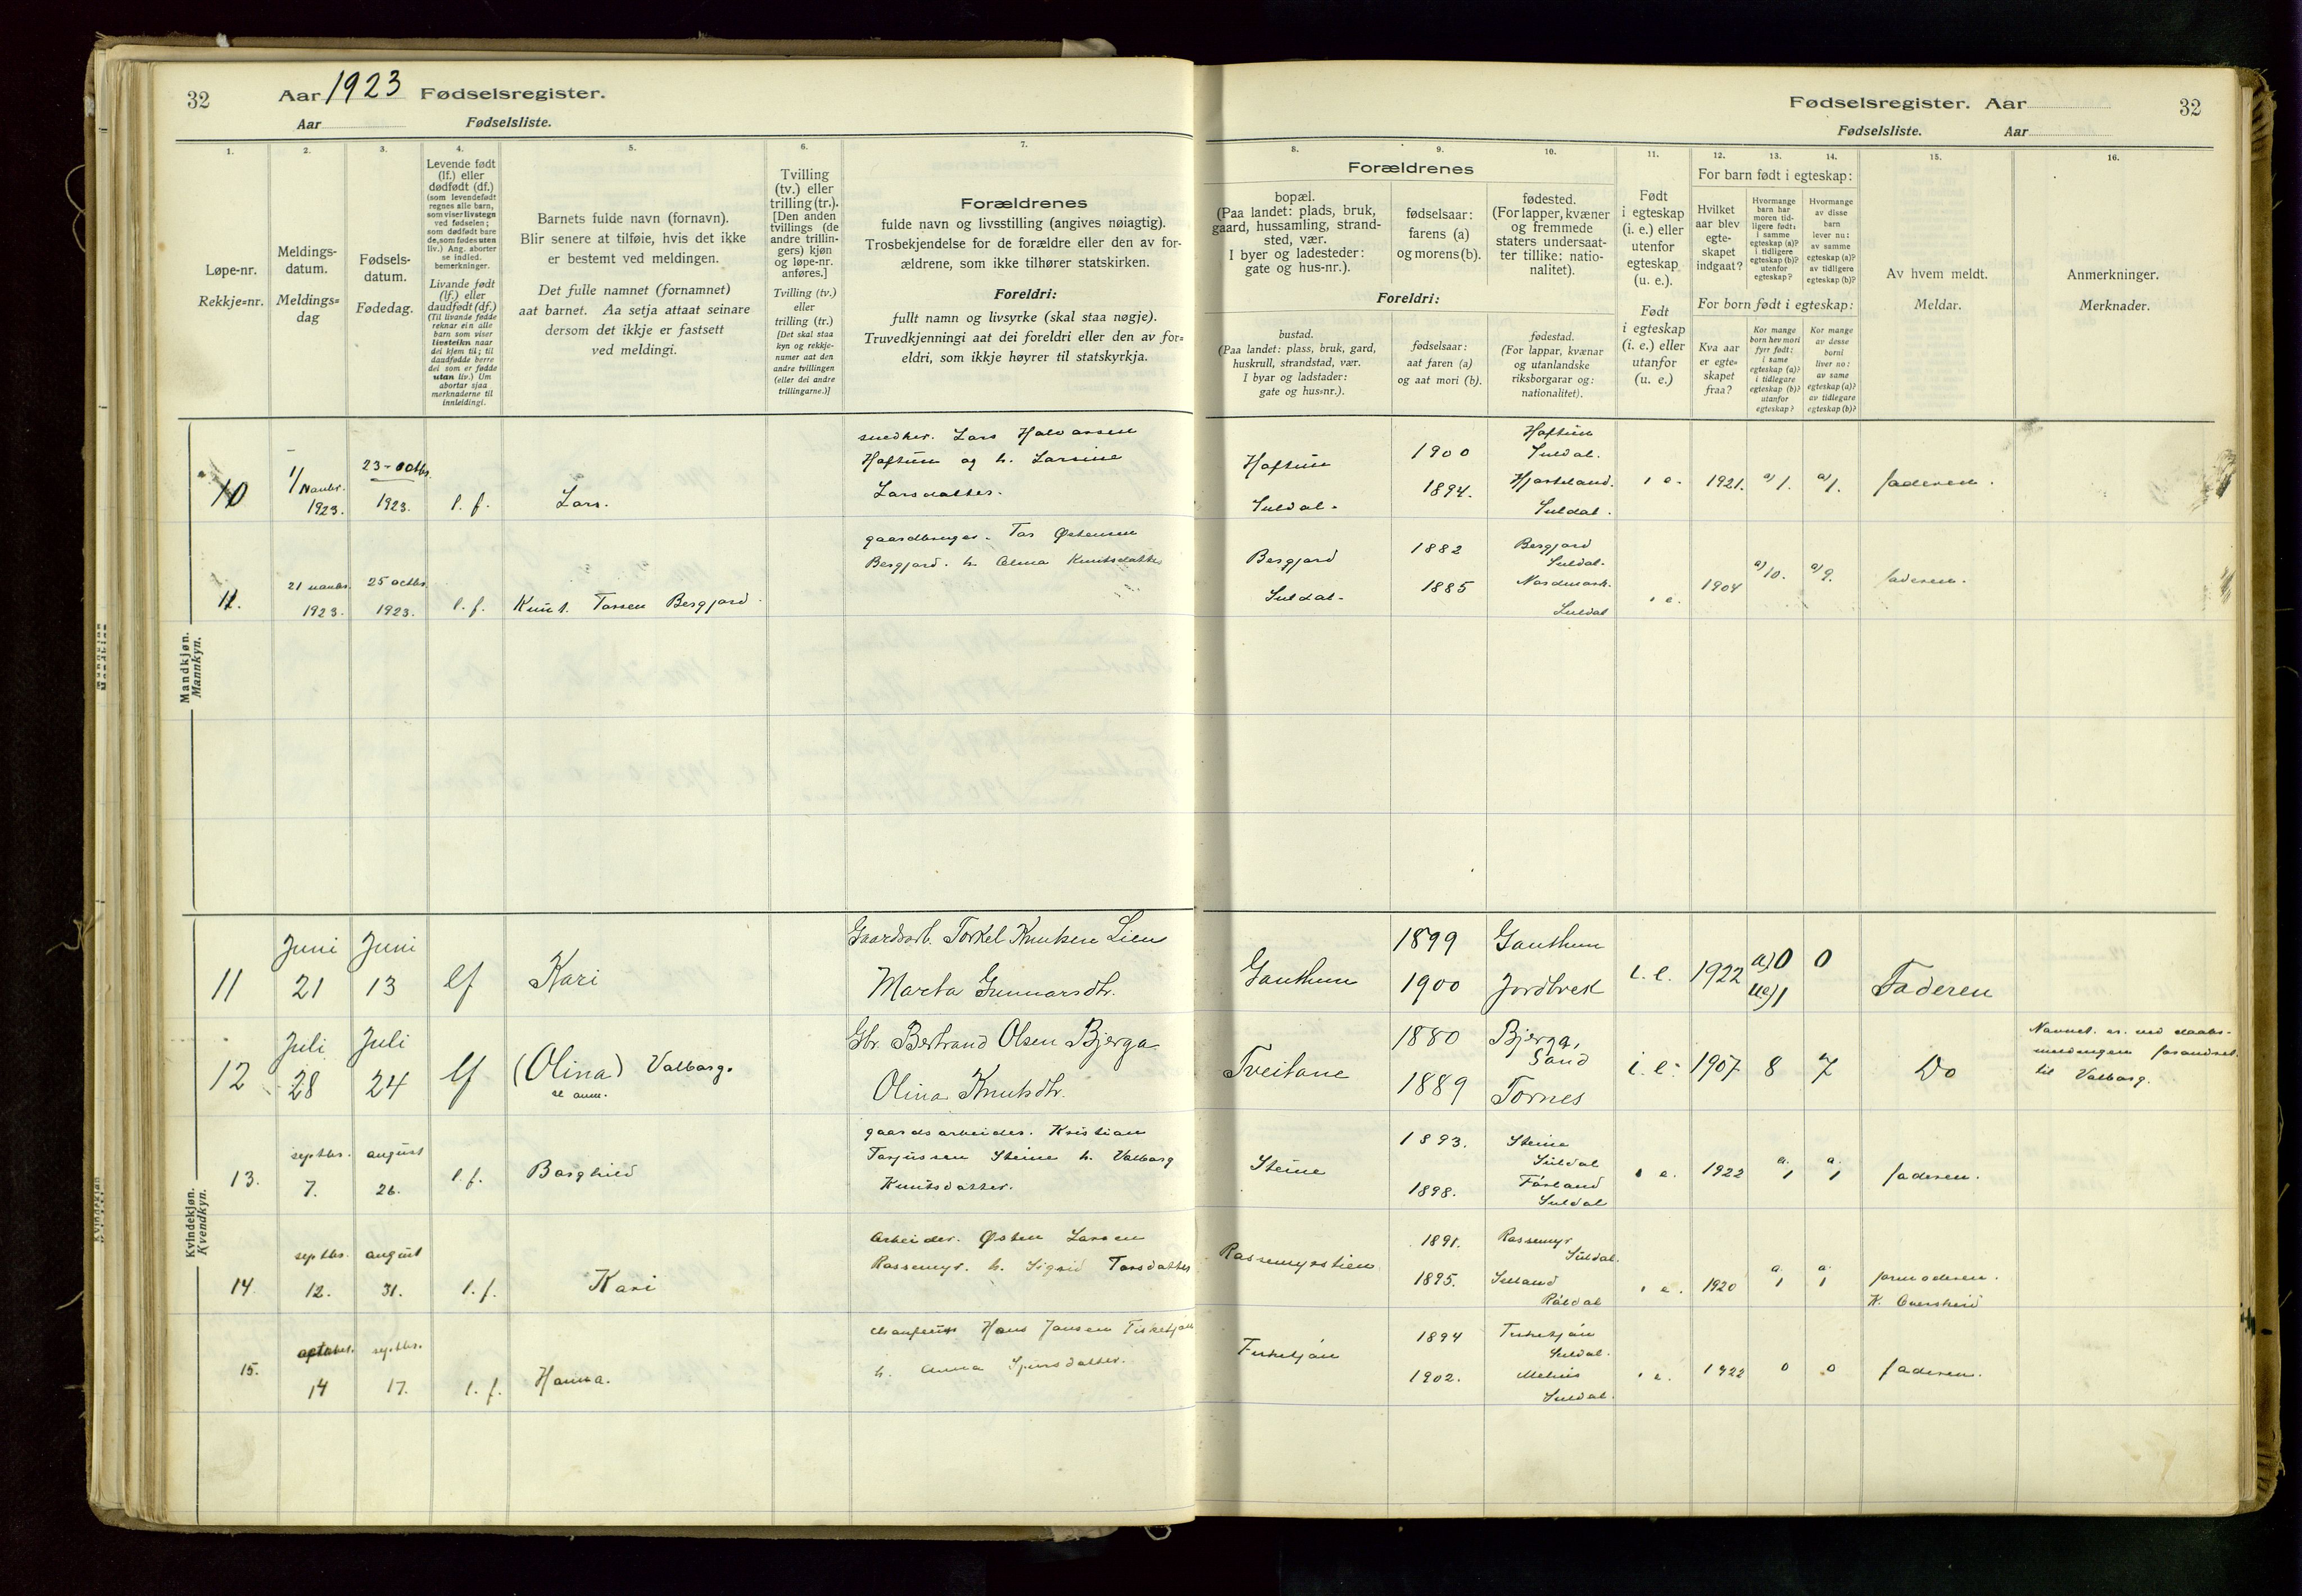 32
Aar 1923 Fødselsregister.
Aar Fødselsliste.
1.
Løpe-nr.
Rekkje=nr.
2.
Meldings-
datum.
Meldings=
dag
3.
Fødsels-
datum.
Fødedag.
4.
Levende født
(lf.) eller
dødfødt (df.)
(som levendefødt
regnes alle barn,
som viser livstegn
ved fødselen;
som dødfødt bare
de, som fødes uten
liv.) Ang. aborter
se indled.
bemerkninger.
Livande født
(lf.) eller
daudfødt (df.)
(Til livande fødde
reknar ein alle
barn som viser
livsteikn naar
dei kjem til; til
daudfødde berre
dei som er fødde
utan liv.) Um
abortar sjaa
merknaderne til
innleidingi.
5.
Barnets fulde navn (fornavn).
Blir senere at tilføie, hvis det ikke
er bestemt ved meldingen.
Det fulle namnet (fornamnet)
aat barnet. Aa setja attaat seinare
dersom det ikkje er fastsett
ved meldingi.
6.
Tvilling
(tv.) eller
trilling (tr.).
[Den anden
tvillings (de
andre trillin-
gers) kjøn
og løpe-nr.
anføres.]
Tvilling (tv.)
eller
trilling (tr.)
[Det skal staa
kyn og rekkje-
numer aat den
andre tvillingen
(eller dei andre
trillingarne.)]
7.
Forældrenes
fulde navn og livsstilling (angives nøiagtig).
Trosbekjendelse for de forældre eller den av for-
ældrene, som ikke tilhører statskirken.
Foreldri:
fullt namn og livsyrke (skal staa nøgje).
Truvedkjenningi aat dei foreldri eller den av for=
eldri, som ikkje høyrer til statskyrkja.
Mandkjøn.
Mannkyn.
10
1/ Novbr. 1923.
23-octbr. 1923.
l. f.
Lars.
snedker. Lars Halvorsen
Hoftun og h. Larsine
Larsdatter.
11.
21 novbr. 1923.
25 octbr. 1923.
l. f.
Knut Torsen Bergjord.
gaardbruger. Tor Østensen
Bergjord. h. Anna Knutsdatter
Kvindekjøn.
Kvendkyn.
11
Juni 21
Juni 13
lf
Kari
Gaardsarb. Torkel Knutsen Lien
Marta Gunnarsdtr.
12
Juli 28
Juli 24
lf
(Olina) Valborg.
se anm.
Gbr. Bertrand Olsen Bjerga
Olina Knutsdtr.
13.
septbr. 7.
august 26.
l. f.
Borghild
gaardsarbeider. Kristian
Torjussen Steine h. Valborg
Knutsdatter.
14.
septbr. 12.
august 31.
l. f.
Kari
Arbeider. Østen Larsen
Rossemyr. h. Sigrid Torsdatter
15.
14
septbr. 17.
l. f.
Hanna.
chauffeur Hans Jansen
h. Anna
Fødselsregister. Aar
32
Fødselsliste. Aar
8.
Forældrenes
bopæl.
(Paa landet: plads, bruk,
gaard, hussamling, strand-
sted, vær.
I byer og ladesteder:
gate og hus-nr.).
Foreldri:
bustad.
(Paa landet: plass, bruk, gard,
huskrull, strandstad, vær.
I byar og ladstader:
gate og hus=nr.).
9.
fødselsaar:
farens (a)
og morens (b).
fødselsaar:
aat faren (a)
og aat mori (b).
10.
fødested.
(For lapper, kvæner
og fremmede
staters undersaat-
ter tillike: natio-
nalitet).
fødestad.
(For lappar, kvænar
og utanlandske
riksborgarar og:
nationalitet).
11.
Født
i egteskap
(i. e.) eller
utenfor
egteskap
(u. e.).
Født
i egteskap
(i. e.) eller
utanfor
(u. e.)
12.
For barn født i egteskap:
Hvilket
aar blev
egte-
skapet
indgaat?
For born født i egteskap:
Kva aar
er egte=
skapet
fraa?
13.
Hvormange
barn har
moren tid-
ligere født:
i samme
egteskap (a)?
i tidligere
egteskap (b)?
utenfor
egteskap?
Kor mange
born hev mori
fyrr født:
i same
egteskap (a)?
i tidlegare
egteskap (b)?
utanfor
egteskap?
14.
Hvormange
av disse
barn
lever nu:
av samme
egteskap (a)?
av tidligere
egteskap (b)?
Kor mange
av desse
borni
liver no:
av same
egteskap (a)?
av tidlegare
egteskap (b)?
15.
Av hvem meldt.
Meldar.
16.
Anmerkninger.
Merknader.
Hoftun
Suldal.
1900
1894.
Hoftun
Suldal.
Hjorteland.
Suldal.
i e.
1921.
a) 1.
a) 1.
faderen.
Bergjord
Suldal.
1882
1885
Bergjord
Suldal.
Nordmork.
Suldal
i e.
1904
a) 10.
a) 9.
faderen.
Ganthun
1899
1900
Ganthun
Jordbrek
i. e.
1922
a) 0
ue) 1
0
Faderen
Tveitane
1880
1889
Bjerga,
Sand
Tornes
i. e.
1907
8
7
Do
Navnet er ved daabs-
meldingen forandret
til Valborg.
Steine
1893.
1898.
Steine
Suldal
Førland
Suldal
i e.
1922
a. 1
a. 1
faderen.
Rossemyrstien
1891.
1895.
Rossemyr
Suldal.
Røldal
i e.
1920
a. 1
a. 1
jormoderen.
1894
1902.
Suldal.
Suldal.
i e.
1922
0
0
faderen.